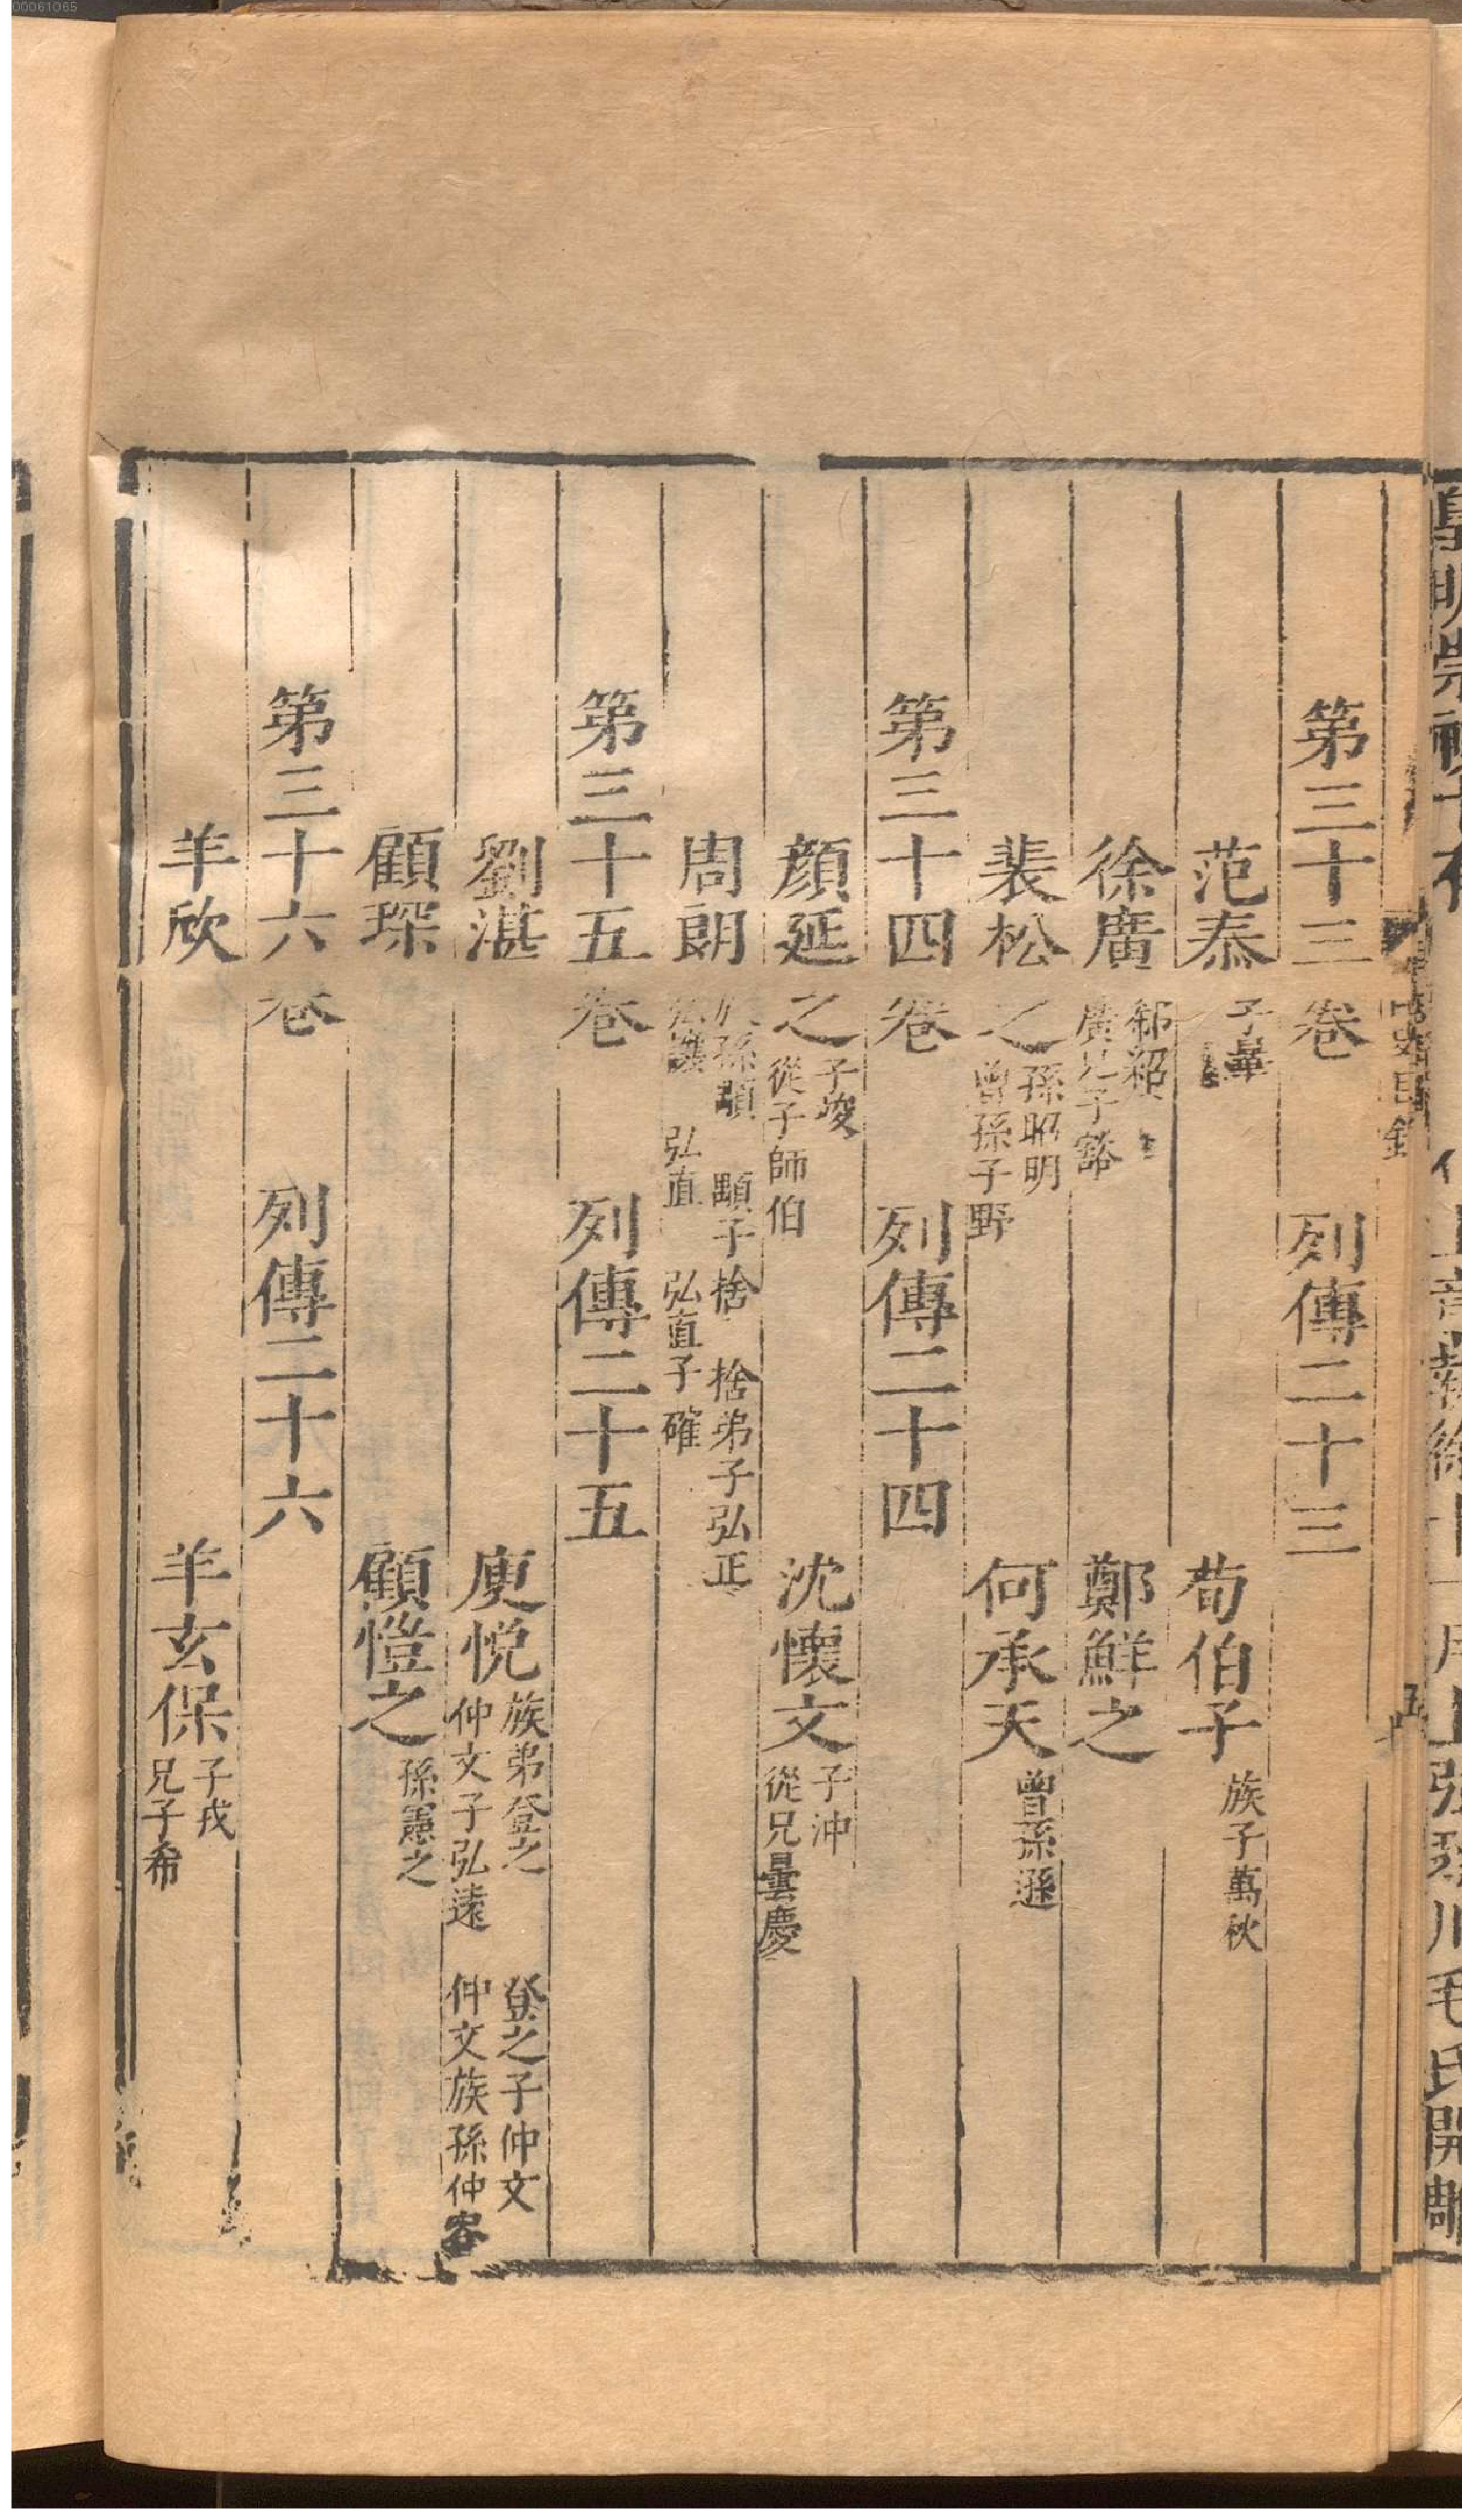 00061065
第三十三卷 列傳二十三
范泰 子曅 荀伯子 族子萬秋
徐廣 郗紹 廣兄子豁 鄭鮮之
裴松之 孫昭明 曾孫子野 何承天 曾孫遜
第三十四卷 列傳二十四
顏延之 子竣 從子師伯 沈懷文 子沖 從兄曇慶
周朗 族孫顒 顒子捨 捨弟子弘正 弘讓 弘直 弘直子確
第三十五卷 列傳二十五
劉湛 庾悅 族弟登之 登之子仲文 仲文子弘遠 仲文族孫仲容
顧琛 顧愷之 孫憲之
第三十六卷 列傳二十六
羊欣 羊玄保 子戎 兄子希